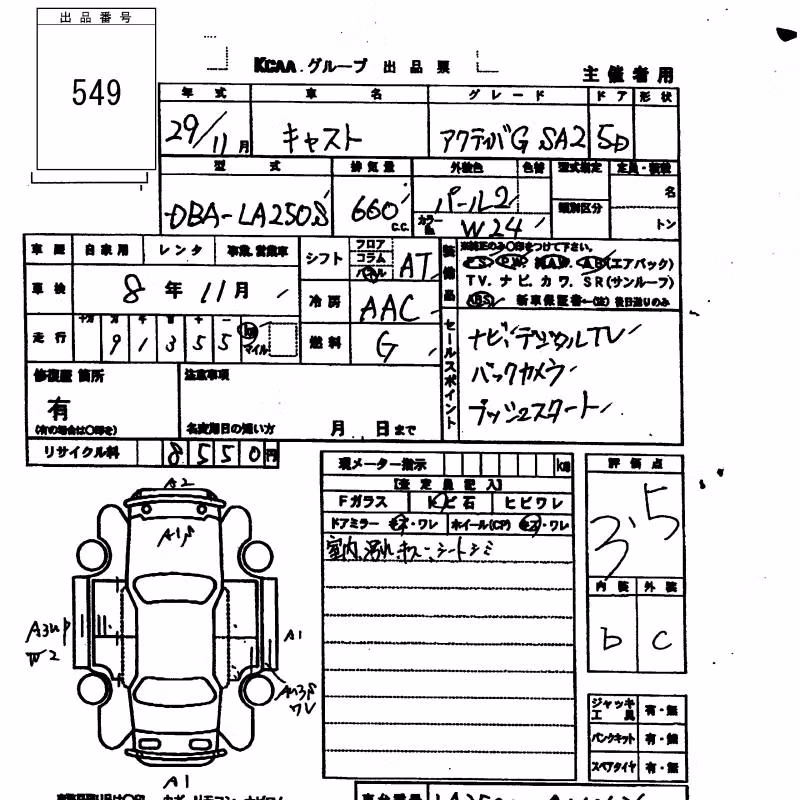 出品番号
549
KCAA.グループ 出品票
主催者用
年式 車名 グレード ドア 形状
29/11月 キャスト アクティバG SA2 5D
型式 排気量 外装色 色替 型式指定 定員・積載
DBA-LA250S 660 c.c. パール2 類別区分 名
カラーNo. W24 トン
車歴 自家用 レンタ 事業.営業車 シフト フロア コラム パネル AT 装備品 ※純正のみ○印をつけて下さい。
PS. PW. 純AW. AB(エアバック)
車検 8年11月 冷房 AAC TV. ナビ. カワ. SR(サンルーフ)
ABS 新車保証書←(注)後日送りのみ
走行 十万 万 千 百 十 一 km マイル 燃料 G セールスポイント ナビ/デジタルTV
91355 バックカメラ
修復歴 箇所 注意事項 プッシュスタート
有
(有の場合は○印を) 名変期日の短い方 月 日まで
リサイクル料 8550円
現メーター指示 km 評価点
【査定員記入】 3.5
Fガラス トビ石 ヒビワレ
ドアミラー キズ・ワレ ホイール(CP) キズ・ワレ
室内汚れキズ、シートシミ
内装 外装
b c
A2
A1
A3
W2
A1
A1
ジャッキ工具 有・無
パンクキット 有・無
スペアタイヤ 有・無
車台番号 LA250S